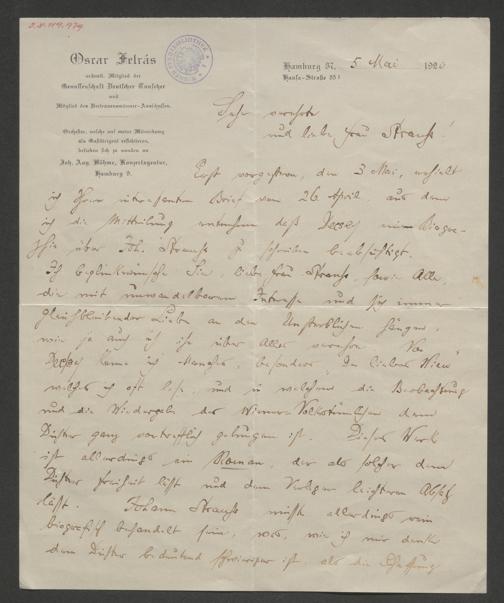 Oscar Fetrás
ordentl. Mitglied der
Genossenschaft Deutscher Tonsetzer
und
Mitglied des Vertrauensmänner-Ausschusses.
Orchester, welche auf meine Mitwirkung
als Gastdirigent reflektieren,
belieben sich zu wenden an
Joh. Aug. Böhme, Konzertagentur,
Hamburg 9.
Hamburg 37, 5 Mai 1920
Hansa-Straße 55 I
Sehr verehrte
und liebe Frau Strauss!
Erst vorgestern, den 3 Mai, erhielt
ich Ihren interessanten Brief vom 26 April, aus dem
ich die Mitteilung entnehme daß Decsey eine Biogra-
phie über Joh. Strauss zu schreiben beabsichtigt.
Ich beglückwünsche Sie, liebe Frau Strauss, sowie Alle,
die mit unwandelbarem Interesse und sich immer
gleichbleibender Liebe an dem Unsterblichen hängen,
wie ja auch ich ihn über Alles verehre. Von
Decsey kenne ich Manches, besonders "Du liebes Wien"
welches ich oft lese, und in welchem die Beobachtung
und die Wiedergabe des Wiener Volkstümlichen dem
Dichter ganz vortrefflich gelungen ist. Dieses Werk
ist allerdings ein Roman, der als solcher dem
Dichter Freiheit läßt und dem Verleger leichteren Absatz
läßt. Johann Strauss müßte allerdings rein
biografisch behandelt sein, was, wie ich mir denke
dem Dichter bedeutend schwieriger ist, als die Schaffung